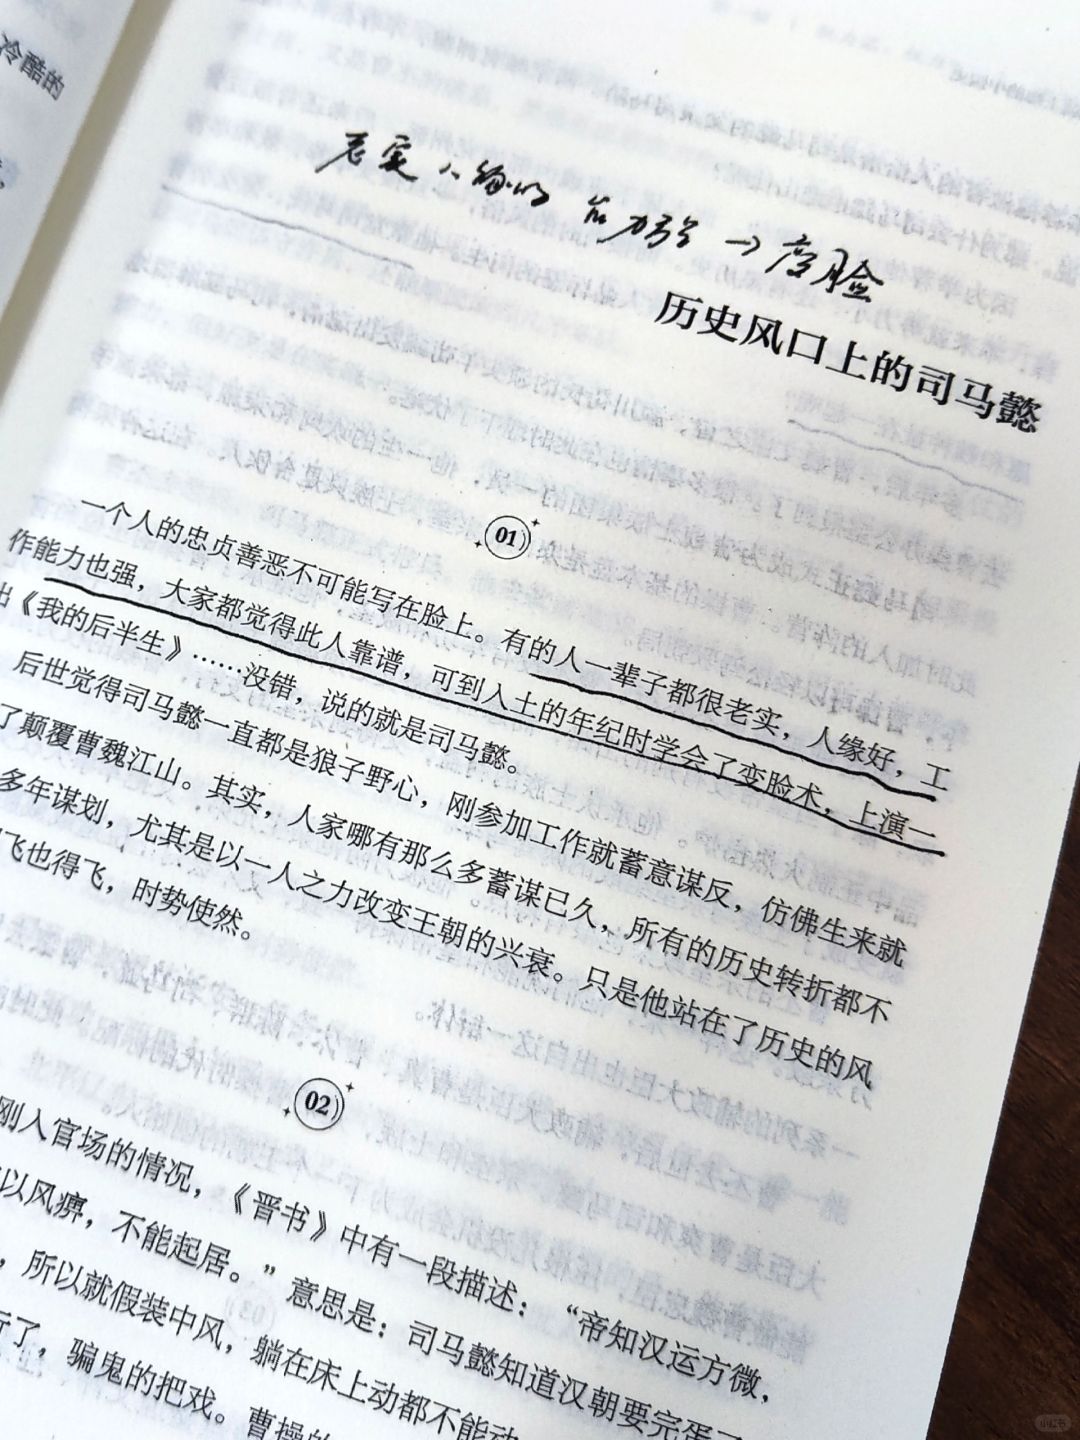 冷酷的
老实人物的后劲 → 变脸
历史风口上的司马懿
01
一个人的忠贞善恶不可能写在脸上。有的人一辈子都很老实，人缘好，工
作能力也强，大家都觉得此人靠谱，可到入土的年纪时学会了变脸术，上演一
出《我的后半生》……没错，说的就是司马懿。
后世觉得司马懿一直都是狼子野心，刚参加工作就蓄意谋反，仿佛生来就
了颠覆曹魏江山。其实，人家哪有那么多蓄谋已久，所有的历史转折都不
多年谋划，尤其是以一人之力改变王朝的兴衰。只是他站在了历史的风
飞也得飞，时势使然。
02
刚入官场的情况，《晋书》中有一段描述：“帝知汉运方微，
以风痹，不能起居。”意思是：司马懿知道汉朝要完蛋了
，所以就假装中风，躺在床上动都不能动
行了，骗鬼的把戏。曹操的
小红书